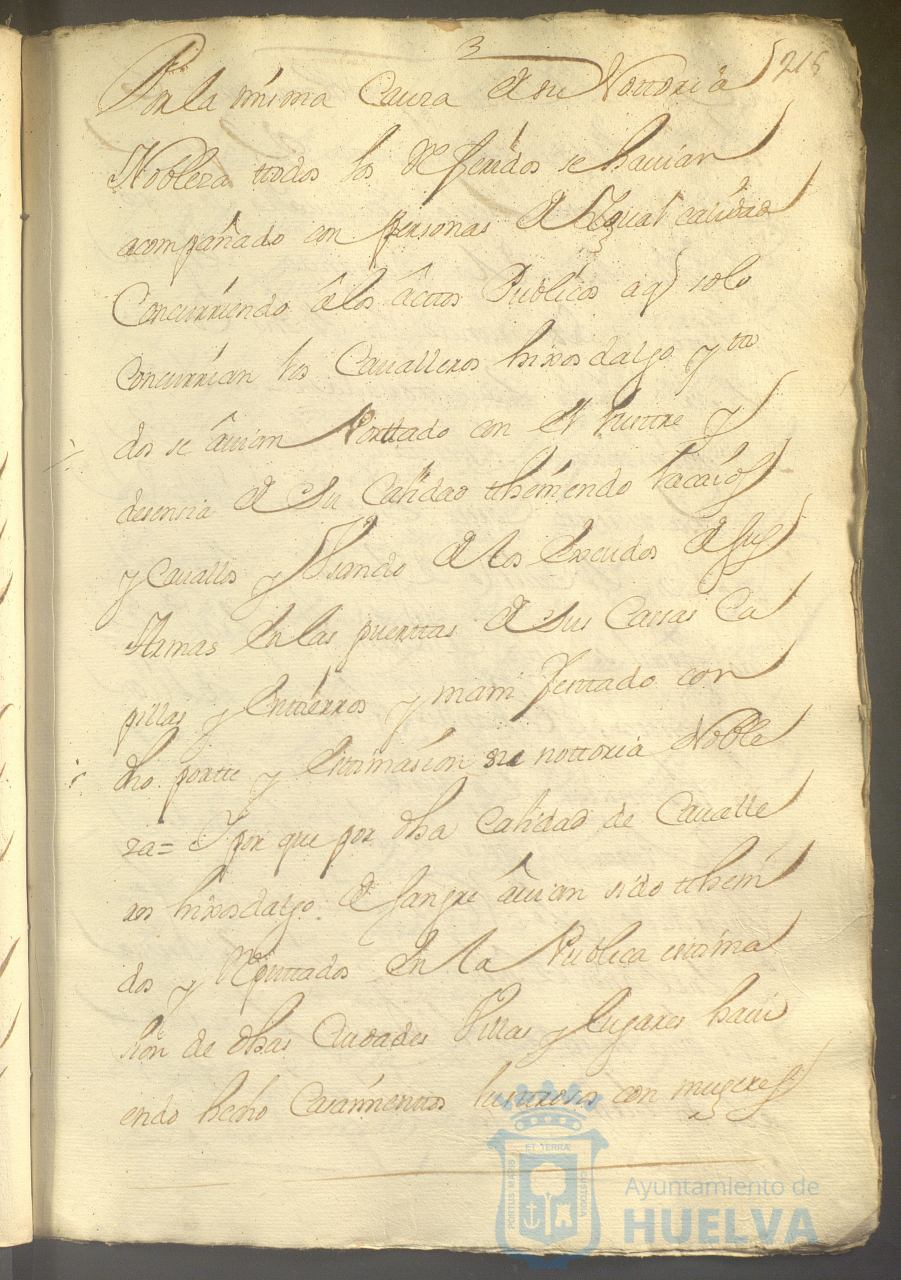 3
216
Por la misma Causa de su Nottoria
Nobleza ttodos los Referidos se hauian
acompañado con personas de Ygual calidad
Concurriendo â los âcttos Publicos aq solo
concurrian los Caualleros hixosdalgo y tto
dos se âuian Porttado con el lusttre y
desensia de su Calidad ttheniendo lacaios
y Cauallos y Vsando de los Escudos de sus
Armas En las puerttas de sus Casas Ca
pillas y Entierros y manifesttado con
dho portte y Estimasion su nottoria Noble
za= Y por que por dha Calidad de Caualle
ros hixosdalgo de sangre âuian sido ttheni
dos y Reputtados En la Publica estima
sion de dhas Ciudades Villas y lugares haui
endo hecho Casamienttos lustrosos con mugeres
PORTUS MARIS
ET TERRÆ
CUSTODIA
Ayuntamiento de
HUELVA